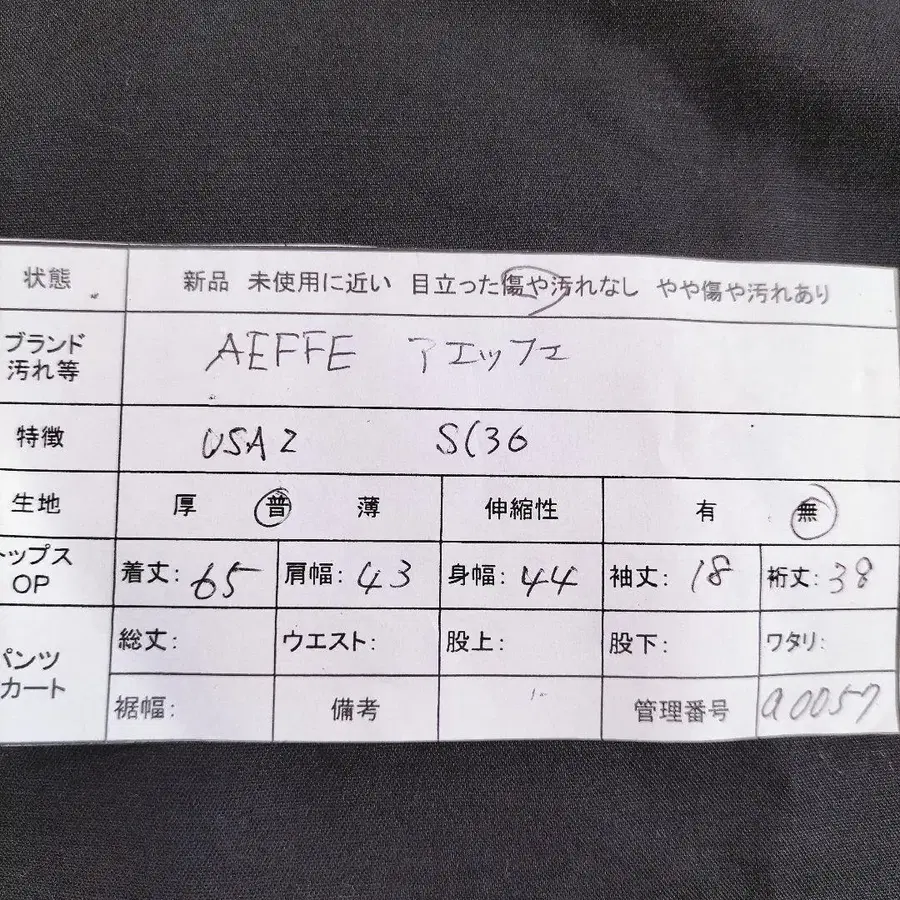 状態 新品 未使用に近い 目立った傷や汚れなし やや傷や汚れあり
ブランド
汚れ等
AEFFE アエッフェ
特徴 USA2 S(36
生地 厚 普 薄 伸縮性 有 無
トップス
OP
着丈: 65 肩幅: 43 身幅: 44 袖丈: 18 裄丈: 38
パンツ
カート
総丈: ウエスト: 股上: 股下: ワタリ:
裾幅: 備考 管理番号 a0057